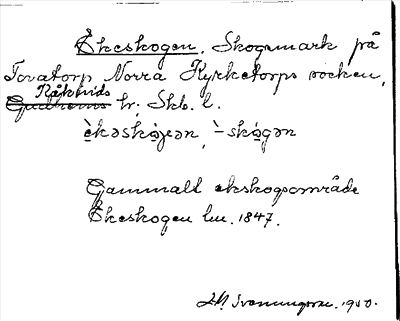 Ekeskogen. Skogsmark på
Tovatorp Norra Kyrketorps socken,
Råkinds
Gudhems hr, Skb. l.
èkəskò̩gən, `-skò̩gən
Gammalt ekskogsområde
Ekeskogen lm. 1847.
1950.